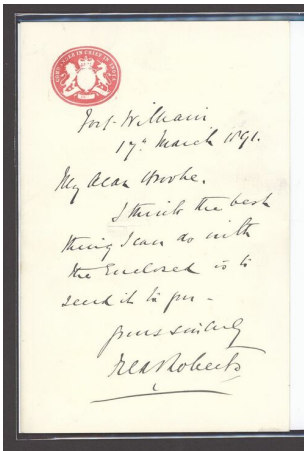 COMMANDER IN CHIEF IN INDIA
Fort William
17th March 1891.
My dear
I think the best
thing I can do with
the Enclosed is to
send it to you -
Yours sincerely
Fred Roberts